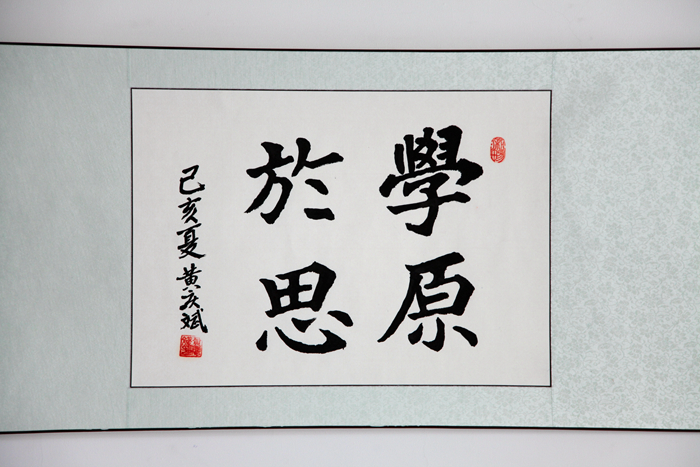 學原
於思
己亥夏黄庆斌